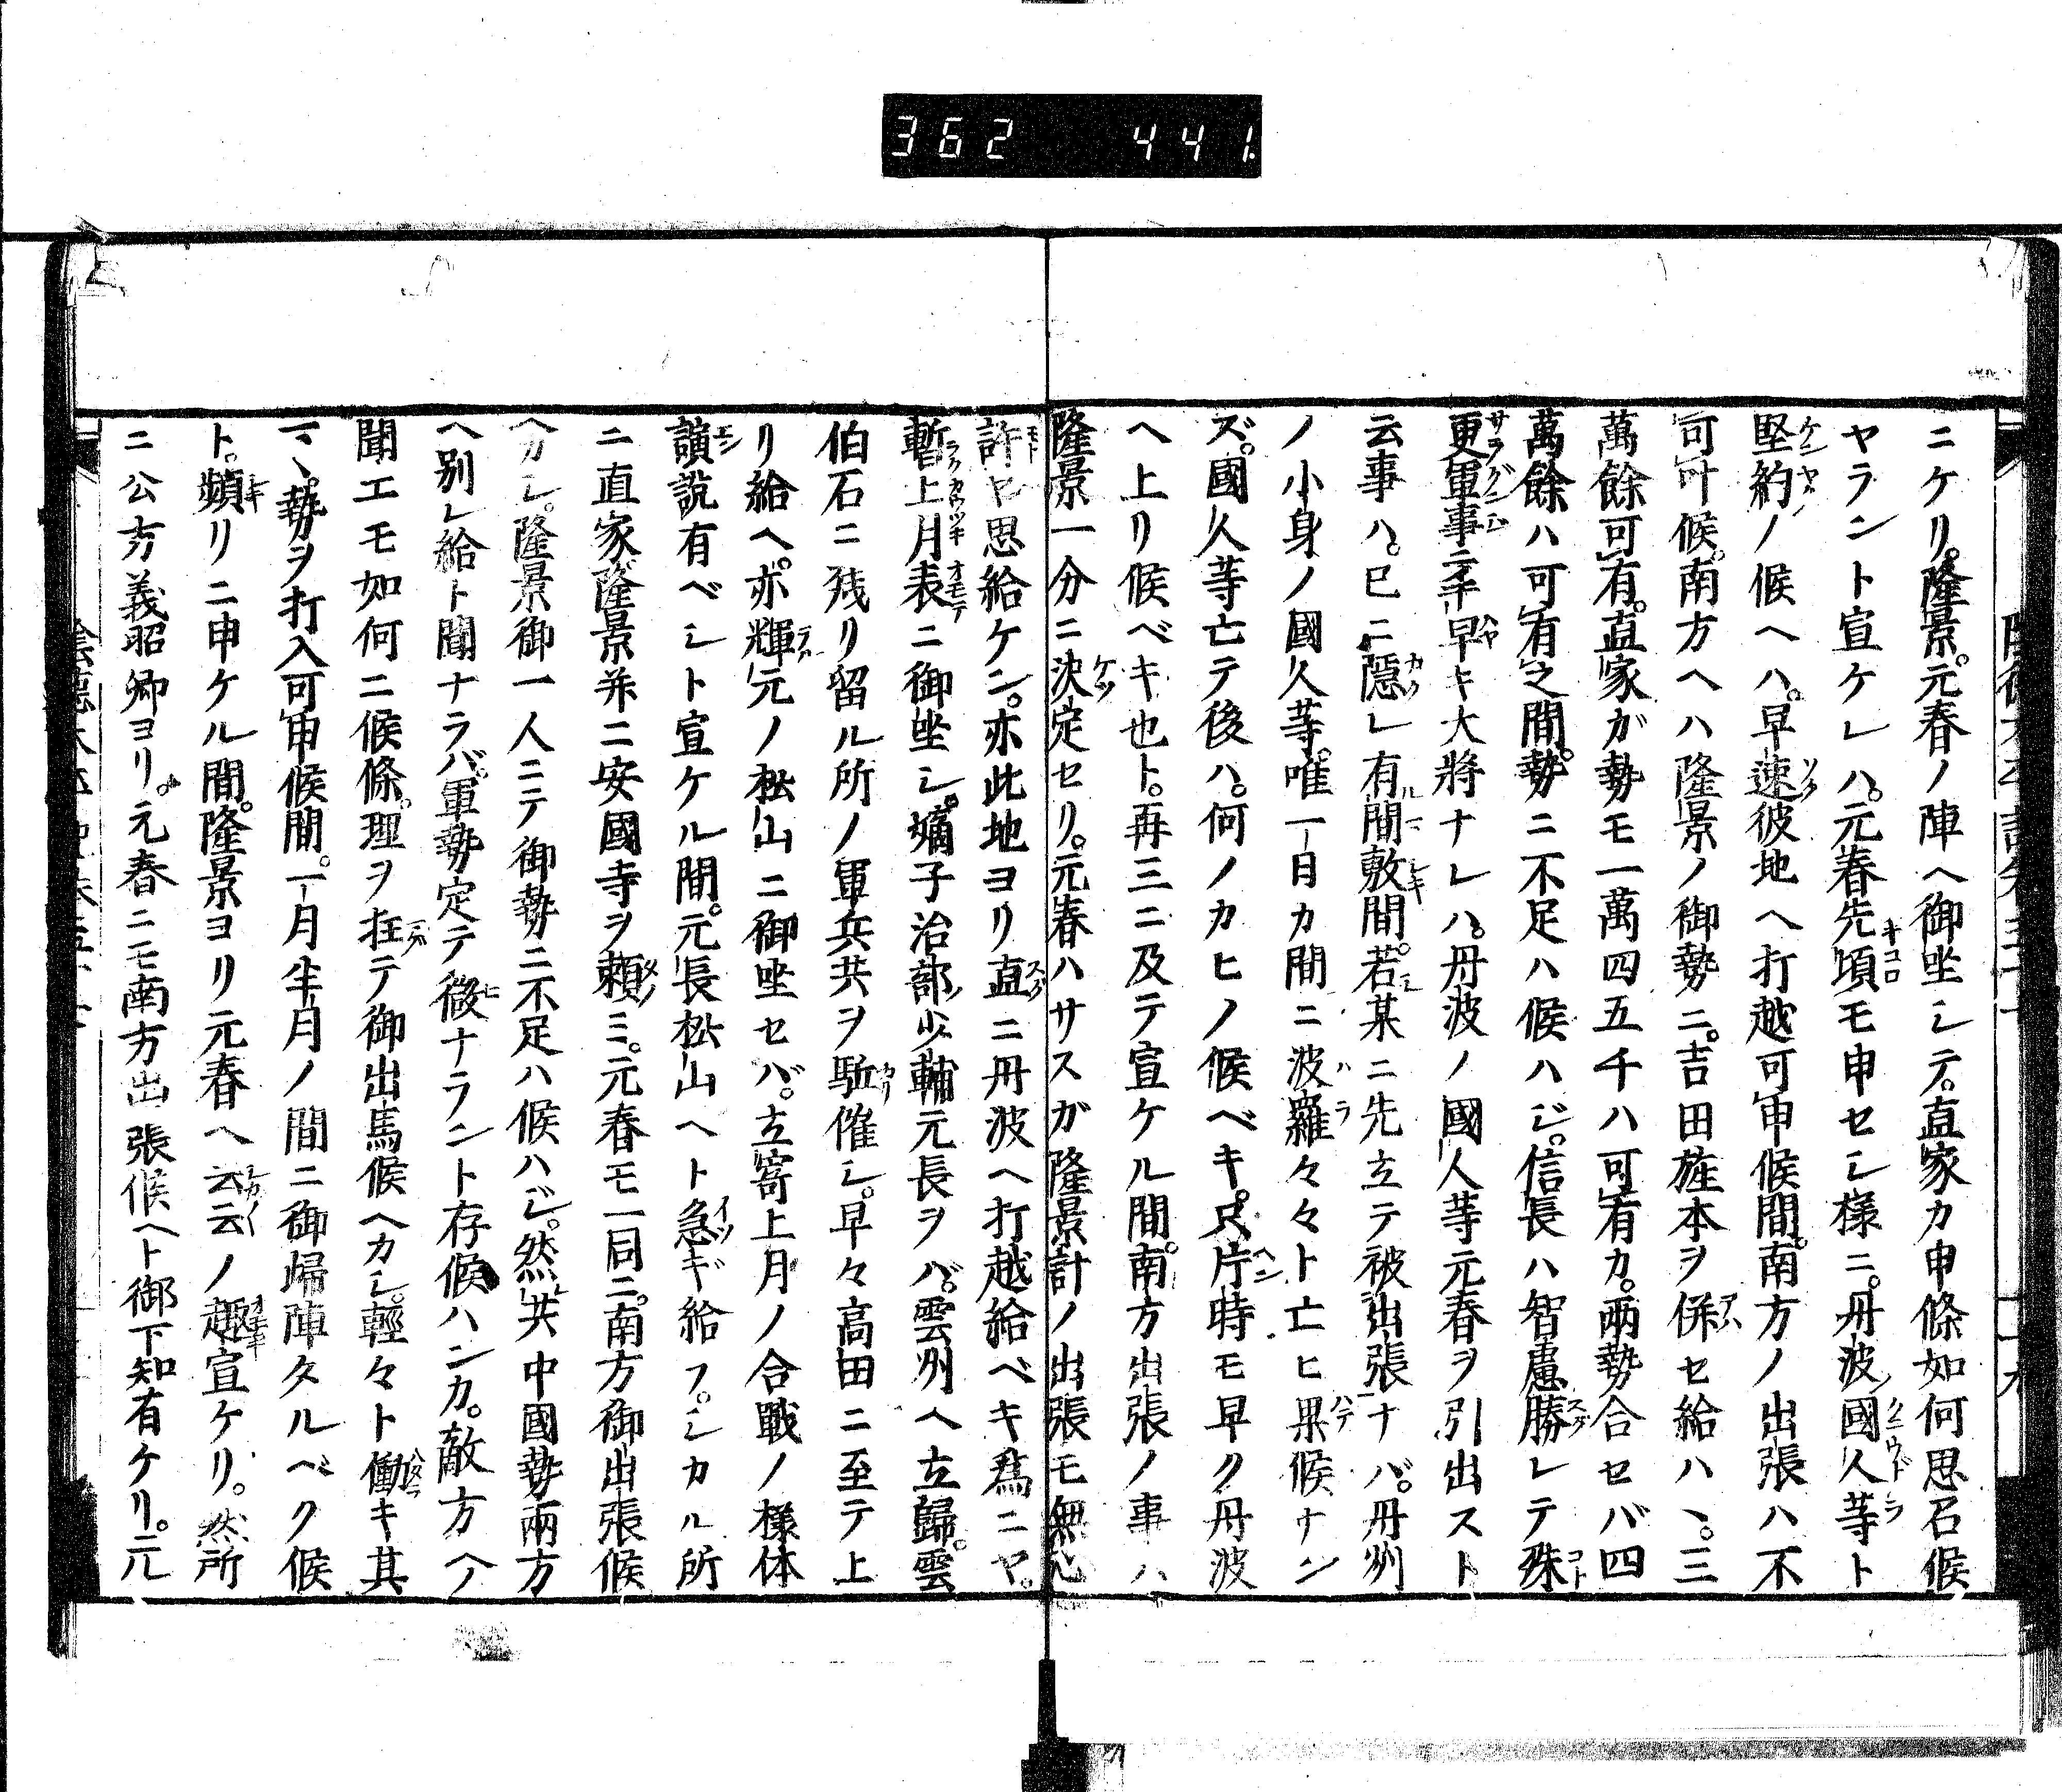 362 441.
ニケリ。隆景。元春ノ陣ヘ御坐シテ。直家カ申條如何思召候
ヤラント宣ケレハ。元春先頃モ申セシ様ニ。丹波ノ國人等ト
堅約ノ候ヘハ。早速彼地ヘ打越可申候間。南方ノ出張ハ不
可叶候。南方ヘハ隆景ノ御勢ニ。吉田旌本ヲ併セ給ハヽ。三
萬餘可有。直家ガ勢モ一萬四五千ハ可有カ。兩勢合セバ四
萬餘ハ可有之間。勢ニ不足ハ候ハジ。信長ハ智慮勝レテ殊
更軍事ニ早キ大將ナレハ。丹波ノ國人等元春ヲ引出スト
云事ハ。已ニ隱レ有間敷間。若某ニ先立テ被出張ナバ。丹州
ノ小身ノ國人等。唯一日カ間ニ波羅々々ト亡ヒ果候ナン
ズ。國人等亡テ後ハ。何ノカヒノ候ベキ。只片時モ早ク丹波
ヘ上リ候ベキ也ト。再三ニ及テ宣ケル間。南方出張ノ事ハ
隆景一分ニ決定セリ。元春ハサスガ隆景計ノ出張モ無心
許ヤ思給ケン。亦此地ヨリ直ニ丹波ヘ打越給ベキ爲ニヤ。
暫上月表ニ御坐シ。嫡子治部少輔元長ヲバ。雲州ヘ立歸。雲
伯石ニ残リ留ル所ノ軍兵共ヲ駈催シ。早々高田ニ至テ上
リ給ヘ。亦輝元ノ松山ニ御坐セバ。立寄上月ノ合戰ノ様体
讃説有ベシト宣ケル間。元長松山ヘト急ギ給フ。シカル所
ニ直家隆景并ニ安國寺ヲ頼ミ。元春モ一同ニ。南方御出張候
ヘカシ。隆景御一人ニテ御勢ニ不足ハ候ハジ。然共中國勢兩方
ヘ別レ給ト聞ナラバ。軍勢定テ微ナラント存候ハンカ。敵方ヘノ
聞エモ如何ニ候條。理ヲ抂テ御出馬候ヘカシ。輕々ト働キ其
マヽ。勢ヲ打入可申候間。一月半月ノ間ニ御歸陣タルベク候
ト。頻リニ申ケル間。隆景ヨリ元春ヘ云云ノ趣宣ケリ。然所
ニ公方義昭卿ヨリ。元春ニモ南方出張候ヘト御下知有ケリ。元